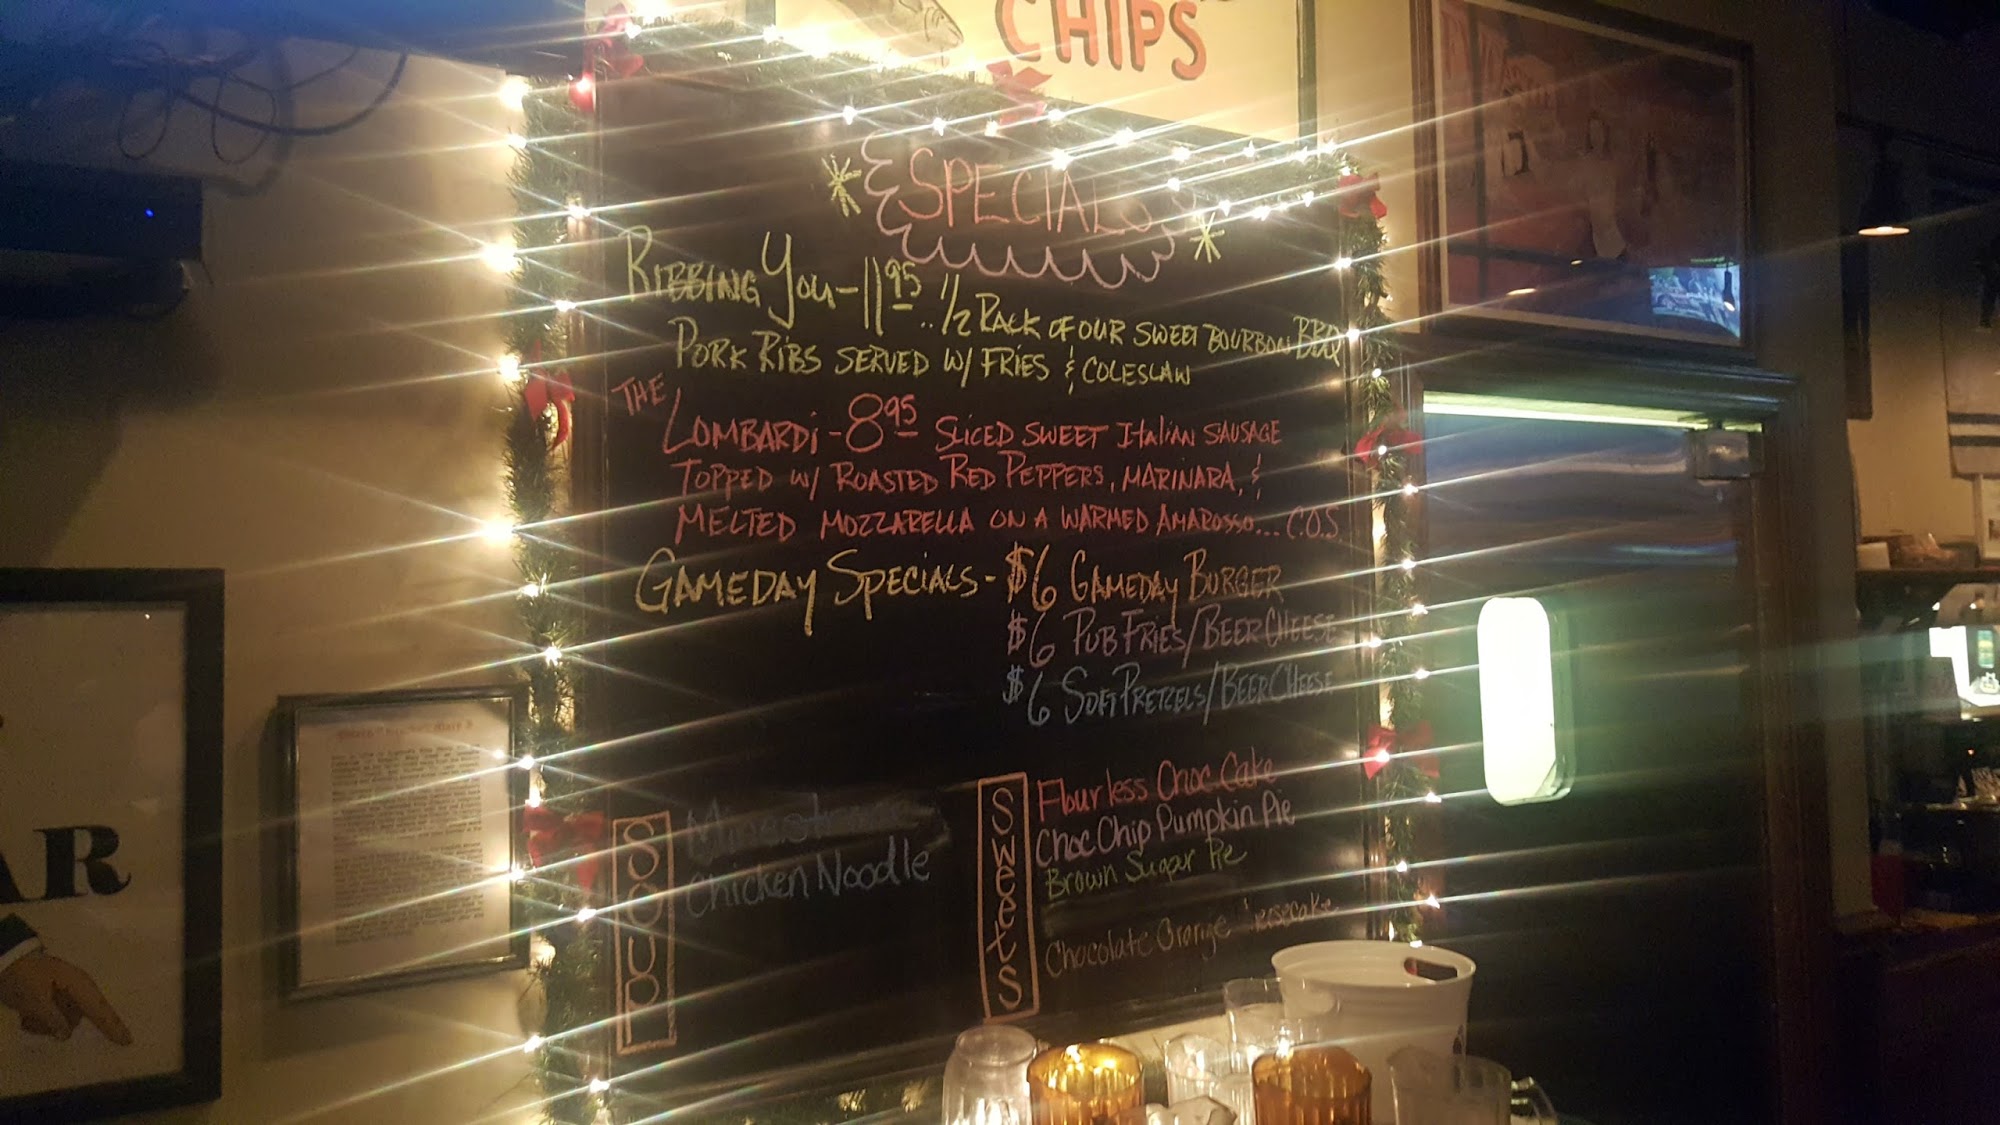 CHIPS
SPECIALS
RIBBING YOU - 11 95 .. 1/2 RACK OF OUR SWEET BOURBON BBQ
PORK RIBS SERVED W/ FRIES & COLESLAW
THE
LOMBARDi - 8 95 SLICED SWEET ITalian SAUSAGE
TOPPED W/ ROASTED RED PEPPERS, MARINARA, &
MELTED MOZZARELLA ON A WARMED AMAROSSO... C.O.S.
GAMEDAY SPECIALS - $6 GAMEDAY BURGER
$6 PUB FRIES/BEER CHEESE
$6 SOFT PRETZELS/BEER CHEESE
SOUP
Minestrone
Chicken Noodle
SweetS
Flourless Choc. Cake
Choc Chip Pumpkin Pie
Brown Sugar Pie
Chocolate Orange
AR